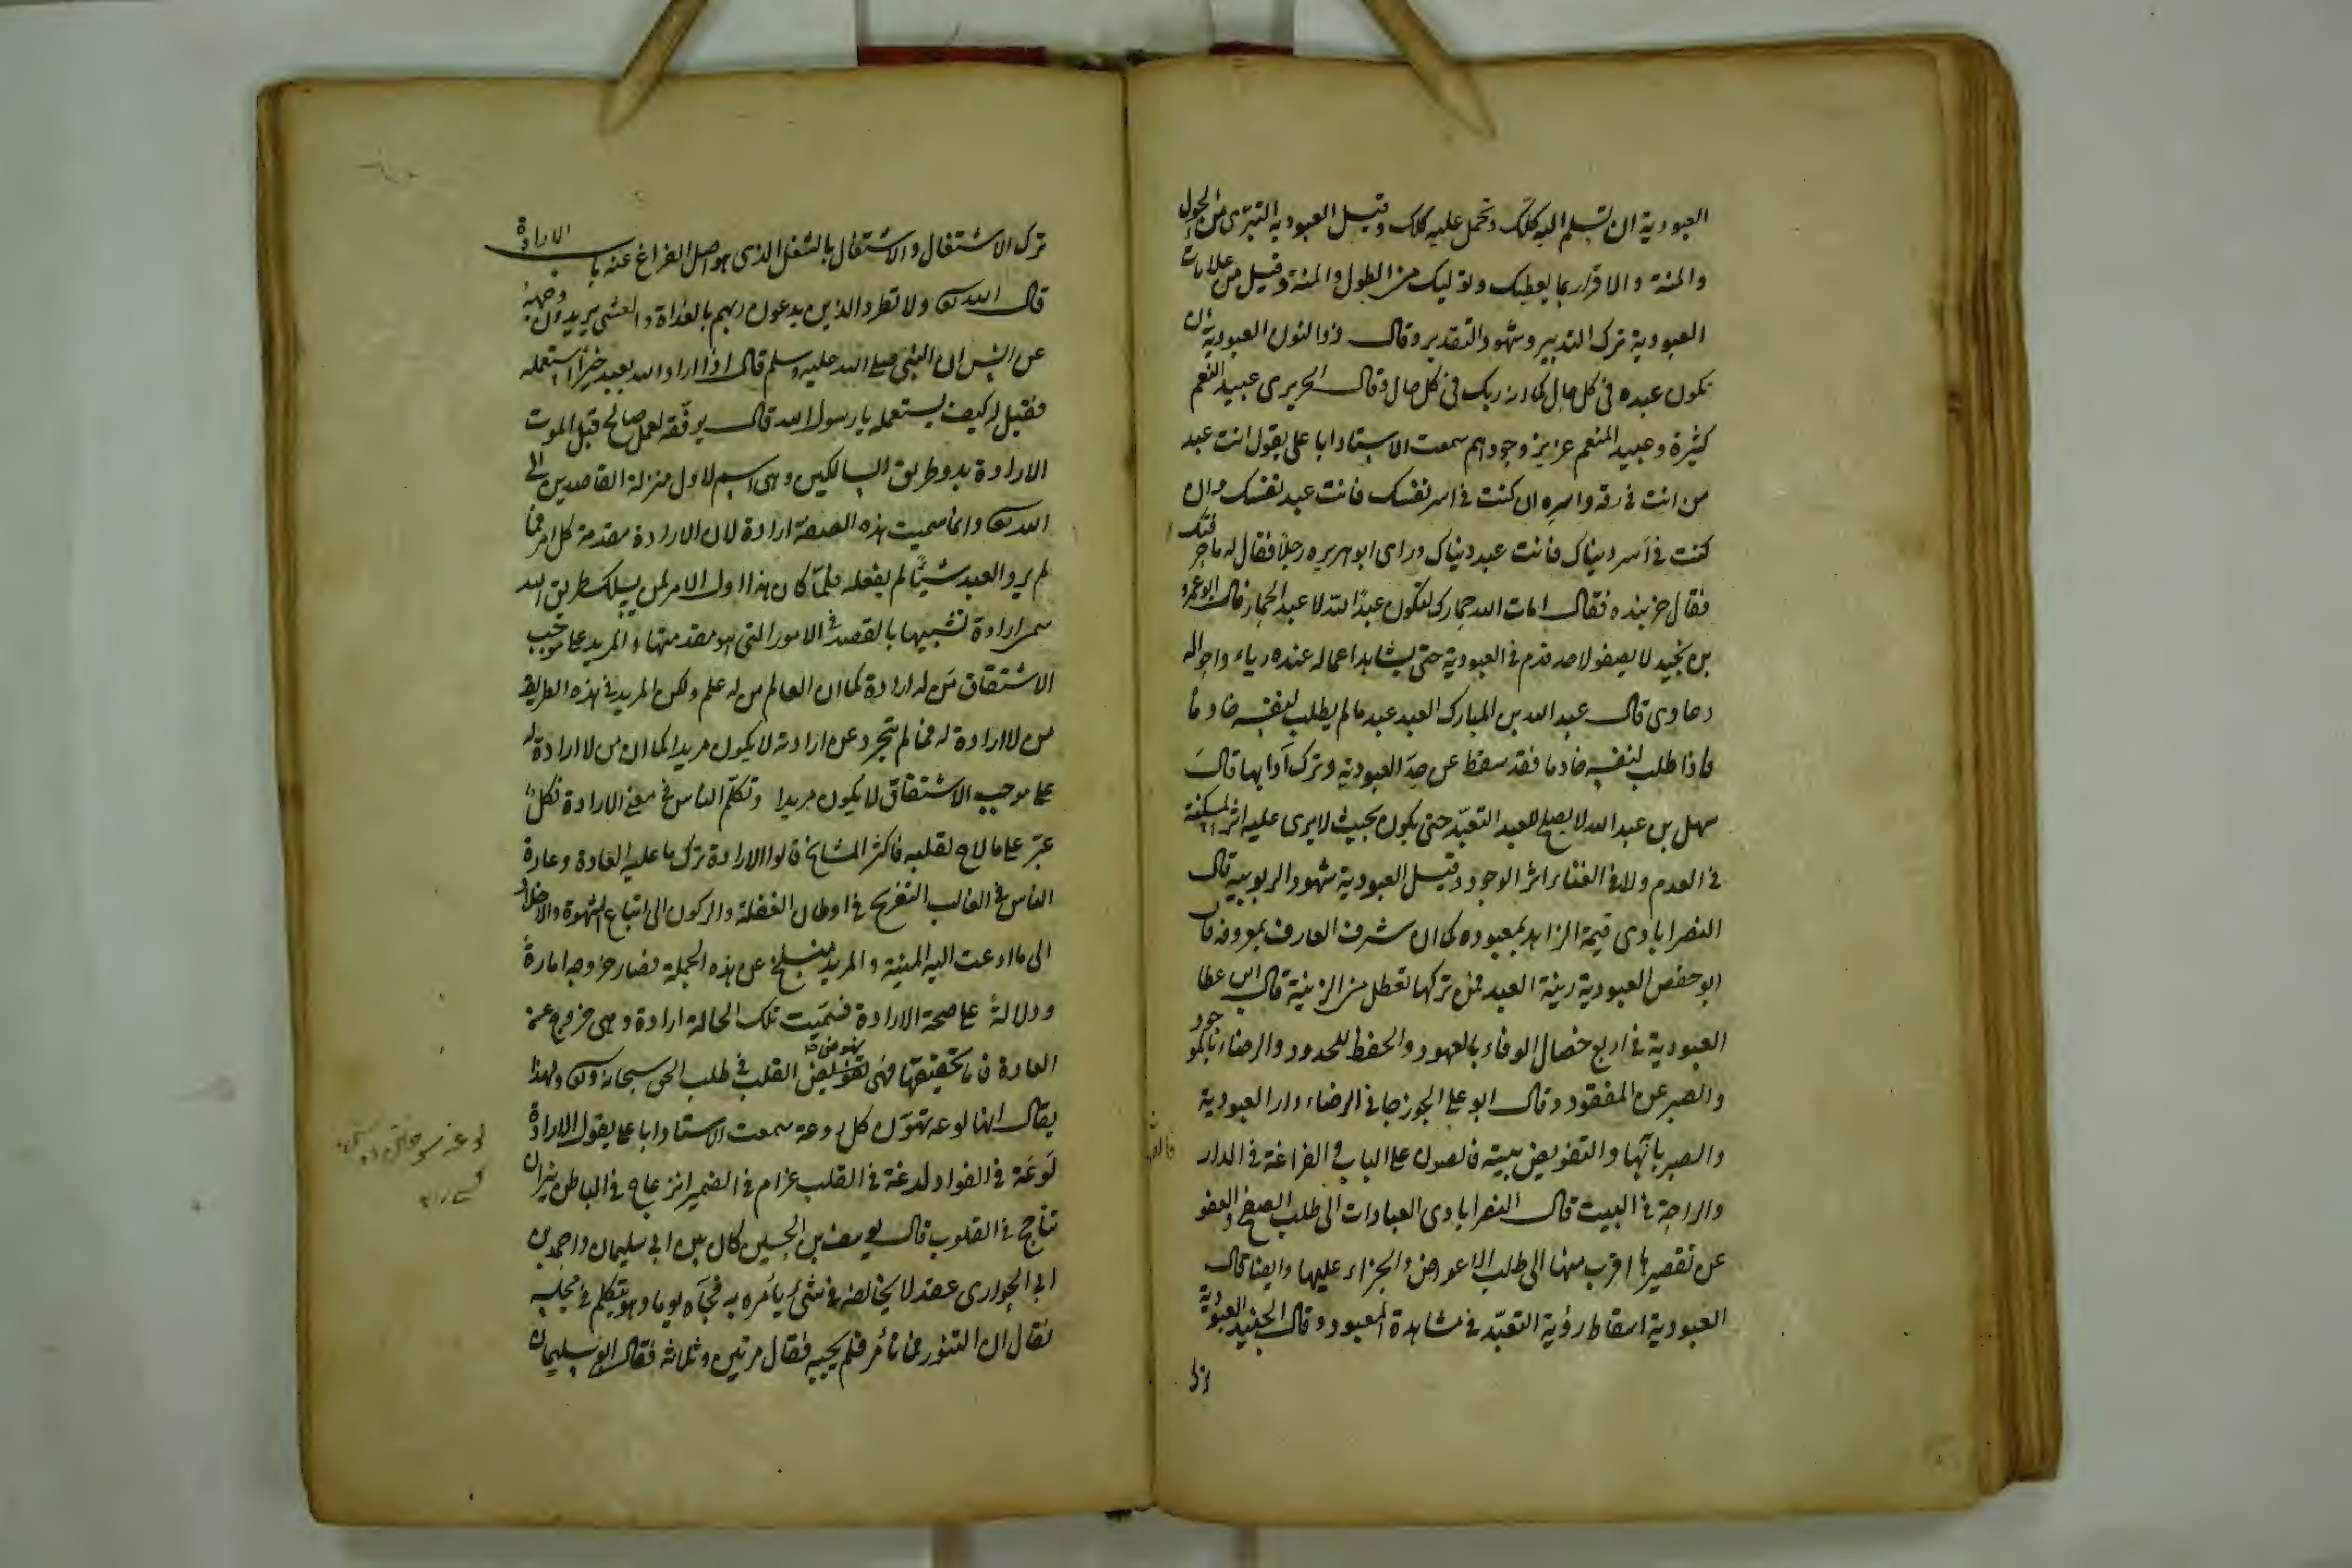 العبودية ان تسلم اليه كلك وتحمل عليه كلك وقيل العبودية التبرى من الحول
والمنة والاقرار بما يعطيك ويوليك من الطول والمنة وقيل من علامات
العبودية ترك التدبير وشهود التقدير وقال ذو النون العبودية ان
تكون عبده فى كل حال كما انه ربك فى كل حال وقال الجريرى عبيد النعم
كثيرة وعبيد المنعم عزيز وجودهم سمعت الاستاد ابا على يقول انت عبد
من انت فى رقه واسره ان كنت فى اسر نفسك فانت عبد نفسك وان
كنت فى اسر دنياك فانت عبد دنياك وراى ابو هريره رجلا فقال له ما حرفتك
فقال خربنده فقال امات الله حمارك لتكون عبدًا لله لا عبد الحمار قال ابو عمرو
بن نجيد لا يصفو لاحد قدم فى العبودية حتى يشاهد اعماله عنده رياء واحواله
دعاوى قال عبد الله بن المبارك العبد عبد ما لم يطلب لنفسه خادمًا
فاذا طلب لنفسه خادما فقد سقط عن حدّ العبودية وترك آدابها قال
سهل بن عبد الله لا يصح للعبد التعبّد حتى يكون بحيث لا يرى عليه اثر المسكنة
فى العدم ولا فى الغناء اثر الوجود وقيل العبودية شهود الربوبية قال
النصرابادى قيمة الزاهد بمعبوده كما ان شرف العارف بمعروفه قال
ابو حفص العبودية زينة العبد فمن تركها تعطل من الزينة قال ابن عطا
العبودية فى اربع خصال الوفاء بالعهود والحفظ للحدود والرضاء بالموجود
والصبر عن المفقود وقال ابو على الجوزجانى الرضاء دار العبودية
والصبر بابها والتفويض بيته فالصوت على الباب والفراغة فى الدار
والراحة فى البيت قال النصرابادى العبادات الى طلب الصفح والعفو
عن تقصيرها اقرب منها الى طلب الاعواض والجزاء عليها وايضا قال
العبودية اسقاط رؤية التعبّد فى مشاهدة المعبود وقال الجنيد العبودية
ترك
ترك الاشتغال والاشتغال بالشغل الذى هو اصل الفراغ عنه باب الارادة
قال الله تعالى ولا تطرد الذين يدعون ربهم بالغداة والعشى يريدون وجهه
عن انس ان النبى صلى الله عليه وسلم قال اذا اراد الله بعبد خيرًا استعمله
فقيل له كيف يستعمله يا رسول الله قال يوفّقه لعمل صالح قبل الموت
الارادة بدو طريق السالكين وهى اسم لاول منزلة القاصدين الى
الله تعالى وانما سميت هذه الصفة ارادة لان الارادة مقدمة كل امر فما
لم يرد العبد شيئًا لم يفعله فلمّا كان هذا اول الامر لمن يسلك طريق الله
سمى ارادة تشبيها بالقصد فى الامور التى هو مقدمتها والمريد على موجب
الاشتقاق من له ارادة كما ان العالم من له علم ولكن المريد فى هذه الطريقة
من لا ارادة له فما لم يتجرد عن ارادته لا يكون مريدا كما ان من لا ارادة له
على موجب الاشتقاق لا يكون مريدا وتكلّم الناس فى معنى الارادة فكلّ
عبّر على ما لاح لقلبه فاكثر المشايخ قالوا الارادة ترك ما عليه العادة وعادة
الناس فى الغالب التعريج فى اوطان الغفلة والركون الى اتباع الشهوة والاخلاد
الى ما ادعت اليه المنية والمريد منسلخ عن هذه الجملة فصار خروجه امارة
ودلالةً على صحة الارادة فسمّيت تلك الحالة ارادة وهى خروج عن
العادة فاما حقيقتها فهى نهوض القلب فى طلب الحق سبحانه وتعالى ولهذا
يقال انها لوعه تهوّن كل روعة سمعت الاستاد ابا على يقول الارادة
لَوعَة فى الفواد لدغة فى القلب غرام فى الضمير انزعاج فى الباطن نيران
تتأجج فى القلوب قال يوسف بن الحسين كان بين ابى سليمان واحمد بن
ابى الحوارى عقد لا يخالفه فى شئ يأمره به فجآه يوما وهو يتكلم فى مجلسه
فقال ان التنور فما تأمر فلم يجبه فقال مرتين وثلاثه فقال ابو سليمان